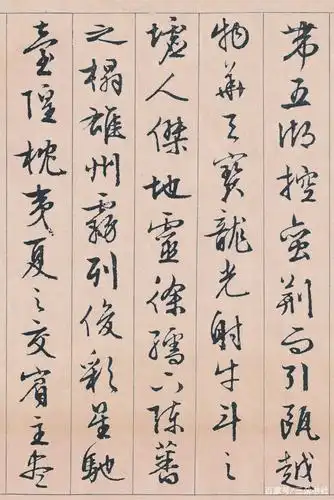 帶五湖控蠻荆而引甌越
物華天寶龍光射牛斗之
墟人傑地靈徐孺下陳蕃
之榻雄州霧列俊彩星馳
臺隍枕夷夏之交賓主盡